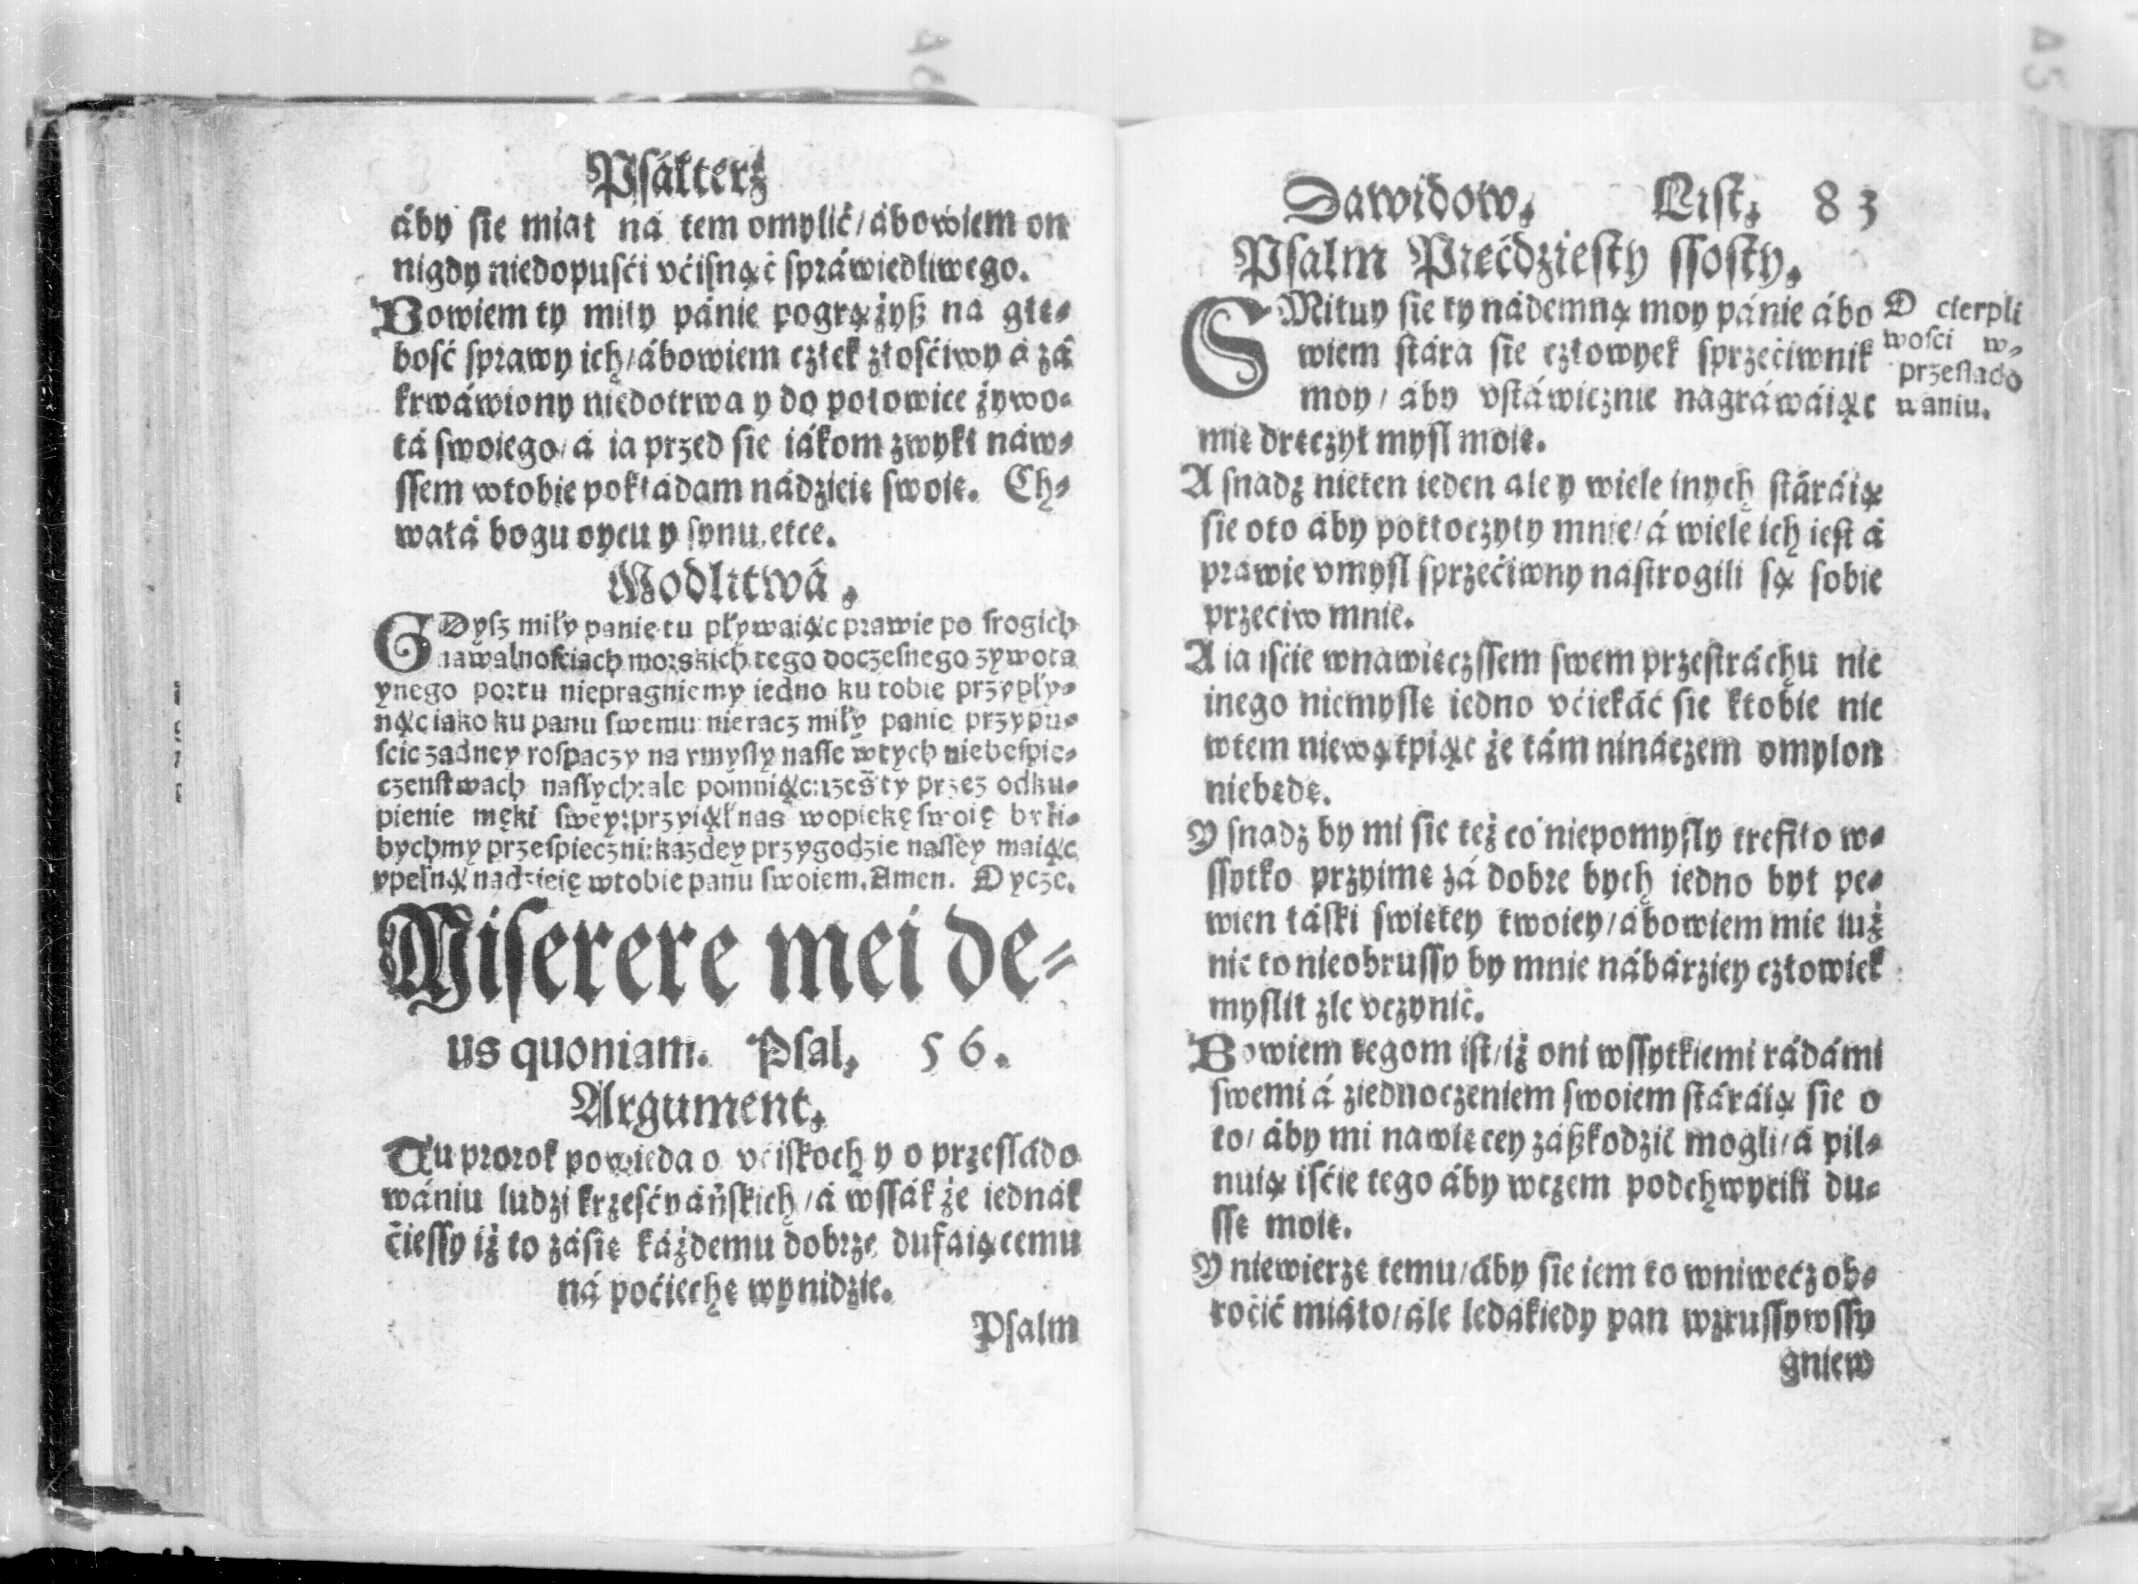 Psałterz
áby sie miał ná tem omylić/ ábowiem on
nigdy niedopusći vćisnąć spráwiedliwego.
Bowiem ty miły pánie pogrążyß ná głę-
bość sprawy ich/ ábowiem człek złosćiwy á zá
krwáwiony niedotrwa y do połowice żywo-
tá swoiego/ á ia przed sie iákom zwykł náw-
ssem wtobie pokłádam nádzieię swoię. Ch-
wałá bogu oycu y synu etce.
Modlitwá.
GDysz miły panie tu pływaiąc prawie po srogich
nawalnosciach morskich tego doczesnego zywota
ynego portu niepragniemy iedno ku tobie przypły-
nąc iako ku panu swemu: nieracz miły panie przypu-
scic zadney rospaczy na vmysły nasse wtych niebespie-
czenstwach nassych: ale pomniąc: izes ty przez odku-
pienie męki swey: przyiął nas wopiekę swoię byśi-
bychmy przespieczni: kazdey przygodzie nassey maiąc
ypełną nadzieię wtobie panu swoiem. Amen. Oycze.
Miserere mei de-
us quoniam. Psal. 56.
Argument.
Tu prorok powieda o vćiskoch y o przesládo
wániu ludzi krzesćyáńskich/ á wssák że iednák
ćiessy iż to zásię káżdemu dobrze dufaiącemu
ná poćiechę wynidzie.
Psalm
Dawidow. List. 83
Psalm Pięćdziesty ssosty.
SMiłuy sie ty nádemną moy pánie ábo
wiem stára sie człowyek sprzećiwnik
moy/ áby vstáwicznie nagráwáiąc
mię dręczył mysl moię.
O cierpli
wosci w-
przeslado
waniu.
A snadz nieten ieden ale y wiele inych stáráią
sie oto áby potłoczyły mnie/ á wiele ich iest á
prawie vmysl sprzećiwny nastrogili są sobie
przećiw mnie.
A ia isćie wnawięczssem swem przestráchu nic
inego niemyslę iedno vćiekáć sie ktobie nic
wtem niewątpiąc że tám nináczem omylon
niebędę.
Y snadz by mi sie też co niepomysly trefiło w-
ssytko przyimę zá dobre bych iedno był pe-
wien łáski swiętey twoiey/ ábowiem mie iuż
nic to nieobrussy by mnie nábárziey człowiek
myslił zle vczynić.
Bowiem tegom ist/ iż oni wssytkiemi rádámi
swemi á ziednoczeniem swoiem stáráią sie o
to/ áby mi nawięcey záßkodzić mogli/ á pil-
nuią isćie tego áby wczem podchwycili du-
ssę moię.
Y niewierzę temu/ áby sie iem to wniwecz ob-
roćić miáło/ ále ledákiedy pan wzrussywssy
gniew